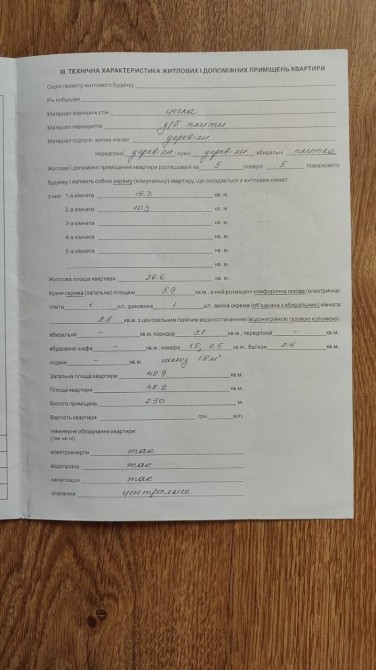 III. ТЕХНІЧНА ХАРАКТЕРИСТИКА ЖИТЛОВИХ І ДОПОМІЖНИХ ПРИМІЩЕНЬ КВАРТИРИ
Серія проекту житлового будинку
Рік побудови
Матеріал зовнішніх стін цегла
Матеріал перекриття з/б плити
Матеріал підлоги: житлих кімнат дерев-ян
передпокої дерев-ян, кухні дерев-ян, вбиральні плитка
Житлові і допоміжні приміщення квартири розташовані на 5 поверсі 5 поверхового
будинку і являють собою окрему (комунальну) квартиру, що складається з житлових кімнат:
з них: 1-а кімната 16.3 кв. м.
2-а кімната 10.3 кв. м.
3-я кімната кв. м.
4-а кімната кв. м.
5-а кімната кв. м.
кв. м.
кв. м.
Житлова площа квартири 26.6 кв. м.
Кухня окрема (загальна) площею 5.9 кв.м., в якій розміщені конфорочна газова (електрична)
плита 1 шт., раковина 1 шт., ванна окрема (об'єднана з вбиральнею) кімната
2.8 кв.м. з центральним гарячим водопостачанням (водонагрівною газовою колонкою),
вбиральня – кв.м., коридор 3.1 кв.м., передпокій – кв.м.,
вбудована шафа – кв.м., комора 1.5, 0.5 кв.м., балкон 2.4 кв.м.,
лоджія – кв.м. шлюз 1.8 м²
Загальна площа квартири 48.9 кв.м.
Площа квартири 48.2 кв.м.
Висота приміщень 2.50 м.
Вартість квартири грн. коп.
Інженерне обладнання квартири:
(так чи ні)
електроенергія так
водопровід так
каналізація так
опалення центральне